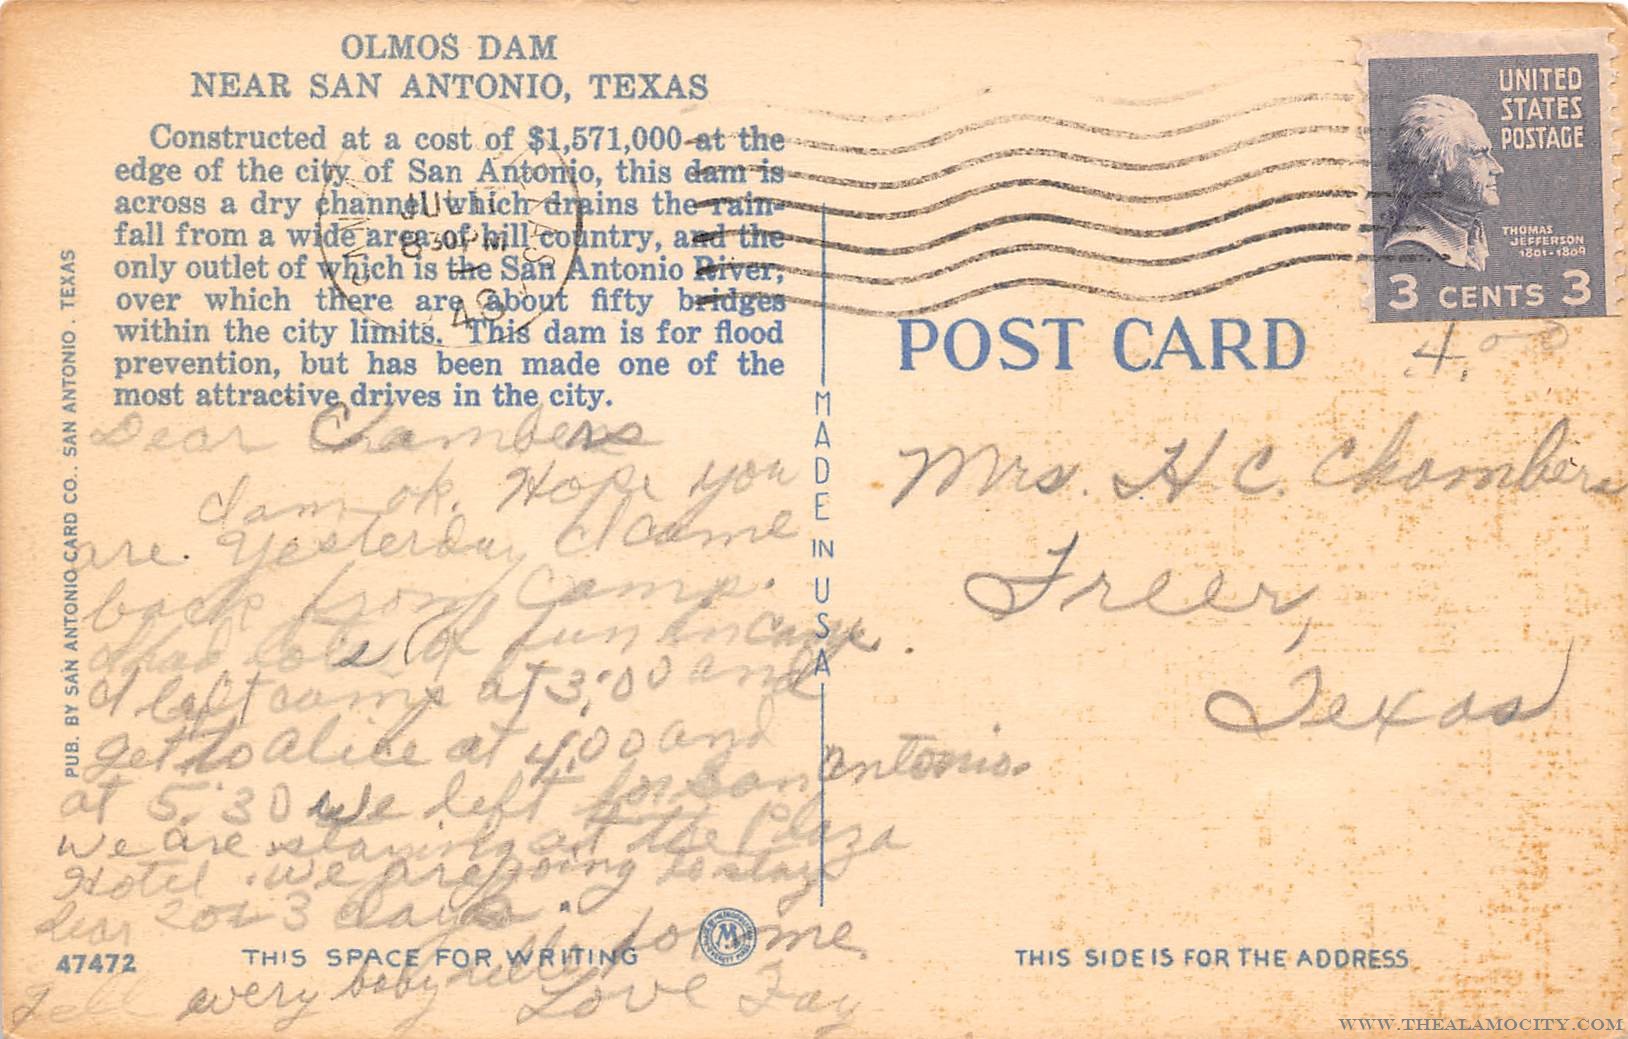 OLMOS DAM
NEAR SAN ANTONIO, TEXAS
Constructed at a cost of $1,571,000 at the
edge of the city of San Antonio, this dam is
across a dry channel which drains the rain-
fall from a wide area of hill country, and the
only outlet of which is the San Antonio River,
over which there are about fifty bridges
within the city limits. This dam is for flood
prevention, but has been made one of the
most attractive drives in the city.
JUL
830PM
PUB. BY SAN ANTONIO CARD CO., SAN ANTONIO, TEXAS
Dear Chambers
I am ok. Hope you
are. Yesterday I came
back from Camp.
I had lots of fun in camp.
I left camp at 3:00 and
get to Alice at 4:00 and
at 5:30 we left for San Antonio.
We are staying at the Plaza
Hotel. We are going to stay
here 2 or 3 days.
Tell every baby hello for me
Love Fay
47472
THIS SPACE FOR WRITING
M
MADE IN USA
UNITED
STATES
POSTAGE
THOMAS
JEFFERSON
1801-1809
3 CENTS 3
POST CARD
4.00
Mrs. H C. Chambers
Freer,
Texas
THIS SIDE IS FOR THE ADDRESS
WWW.THEALAMOCITY.COM